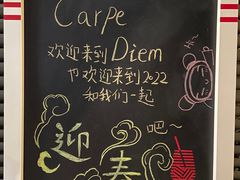 Carpe
欢迎来到 Diem
也欢迎来到2022
和我们一起
吧~
迎春